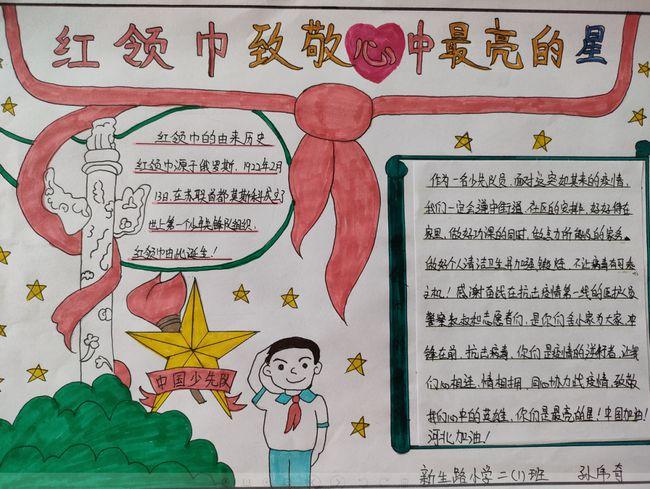 红领巾致敬心中最亮的星
红领巾的由来历史
红领巾源于俄罗斯，1922年2月
13日，在苏联首都莫斯科成立了
世上第一个少年先锋队组织，
红领巾由此诞生！
作为一名少先队员，面对这突如其来的疫情，
我们一定会遵守街道、社区的安排，好好待在
家里，做好功课的同时，做点力所能及的家务。
做好个人清洁卫生并加强锻炼，不让病毒有可乘
之机！感谢奋战在抗击疫情第一线的医护人员
警察叔叔和志愿者们，是你们舍小家为大家，冲
锋在前，抗击病毒，你们是疫情的逆行者，让我
们心相连，情相拥，同心协力战疫情，致敬
我们心中的英雄，你们是最亮的星！中国加油！
河北加油！
中国少先队
新生路小学二(1)班 孙伟奇